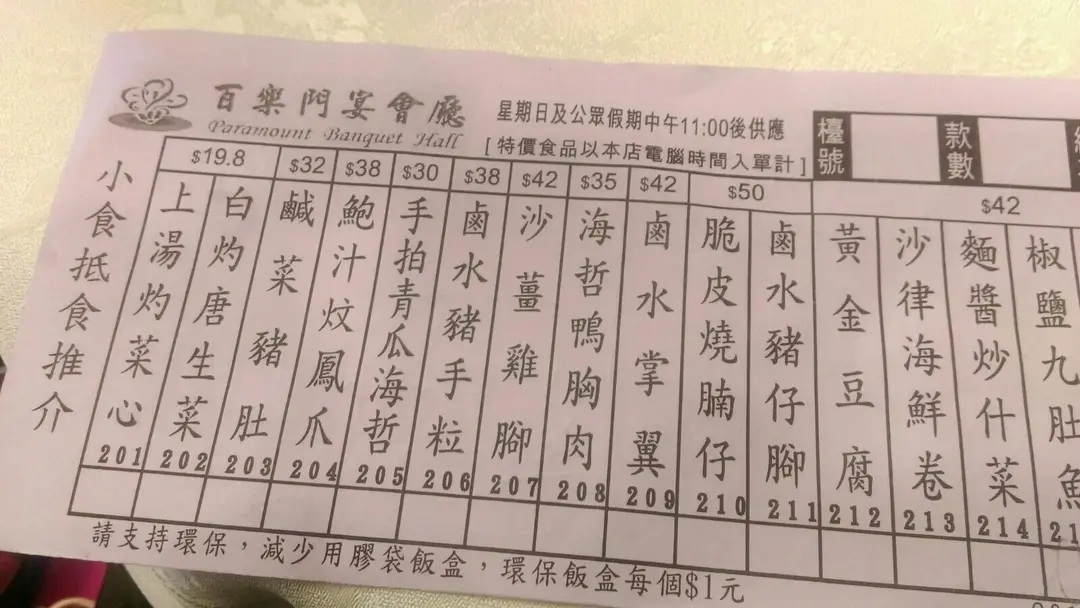 百樂門宴會廳
Paramount Banquet Hall
星期日及公眾假期中午11:00後供應
[特價食品以本店電腦時間入單計]
檯號
款數
小食抵食推介
$19.8
上湯灼菜心 201
白灼唐生菜 202
$32
鹹菜豬肚 203
$38
鮑汁炆鳳爪 204
$30
手拍青瓜海哲 205
$38
鹵水豬手粒 206
$42
沙薑雞腳 207
$35
海哲鴨胸肉 208
$42
鹵水掌翼 209
$50
脆皮燒腩仔 210
鹵水豬仔腳 211
$42
黃金豆腐 212
沙律海鮮卷 213
麵醬炒什菜 214
椒鹽九肚
請支持環保，減少用膠袋飯盒，環保飯盒每個$1元